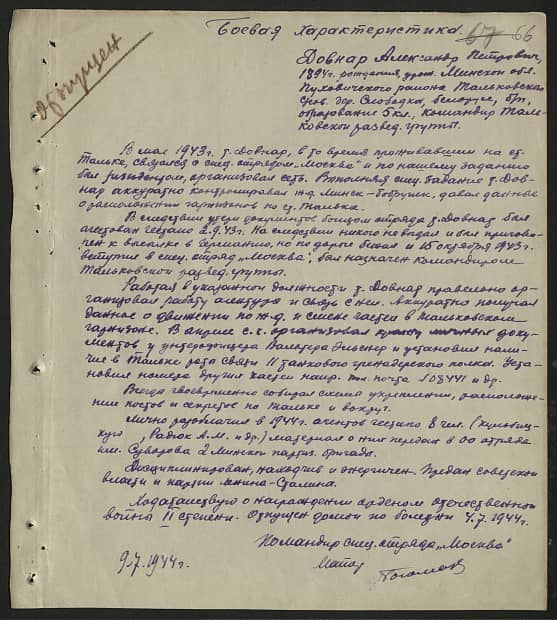 Боевая характеристика.
67 66
Отпущен
Довнар Александр Петрович,
1894г. рождения, урож. Минской обл.
Пуховичского района Тальковского
с/сов. дер. Слободка, белорус, б/п,
образование 5 кл., командир Таль-
ковской развед. группы.
В мае 1943г. т. Довнар, в то время проживавший на ст.
Талька, связался с спец. отрядом „Москва" и по нашему заданию
был резидентом, организовал сеть. Выполняя спец. задание т. Дов-
нар аккуратно контролировал ж.д. Минск-Бобруйск, давал данные
о расположении гарнизонов по ст. Талька.
В следствии утери документов бойцом отряда т. Довнар был
арестован гестапо 2.9.43г. На следствии никого не выдал и был пригово-
рен к высылке в Германию, но по дороге бежал и 15 октября 1943г.
вступил в спец. отряд „Москва", был назначен командиром
Тальковской развед. группы.
Работая в указанной должности т. Довнар правильно ор-
ганизовал работу агентуры и связь с ней. Аккуратно получал
данные о движении по ж.д. и смене частей в Тальковском
гарнизоне. В апреле с.г. организовал личных доку-
ментов у унтерофицера Вальтера Эльснер и установил нали-
чие в Тальке роты связи II танкового гренадерского полка. Уста-
новил номера других частей напр. почта № 08441 и др.
Всегда своевременно собирал схемы укреплений, расположе-
ния постов и секретов по Тальке и вокруг.
Лично разоблачил в 1944г. агентов гестапо 8 чел.
Радюк А.М. и др.) материал о них передан в ОО отряда
им. Суворова 2 Минской партиз. бригады.
Дисциплинирован, находчив и энергичен. Предан советской
власти и партии Ленина-Сталина.
Ходатайствую о награждении орденом отечественной
войны II степени. Отпущен домой по болезни 4.7.1944г.
Командир спец. отряда „Москва"
9.7.1944г.
Майор